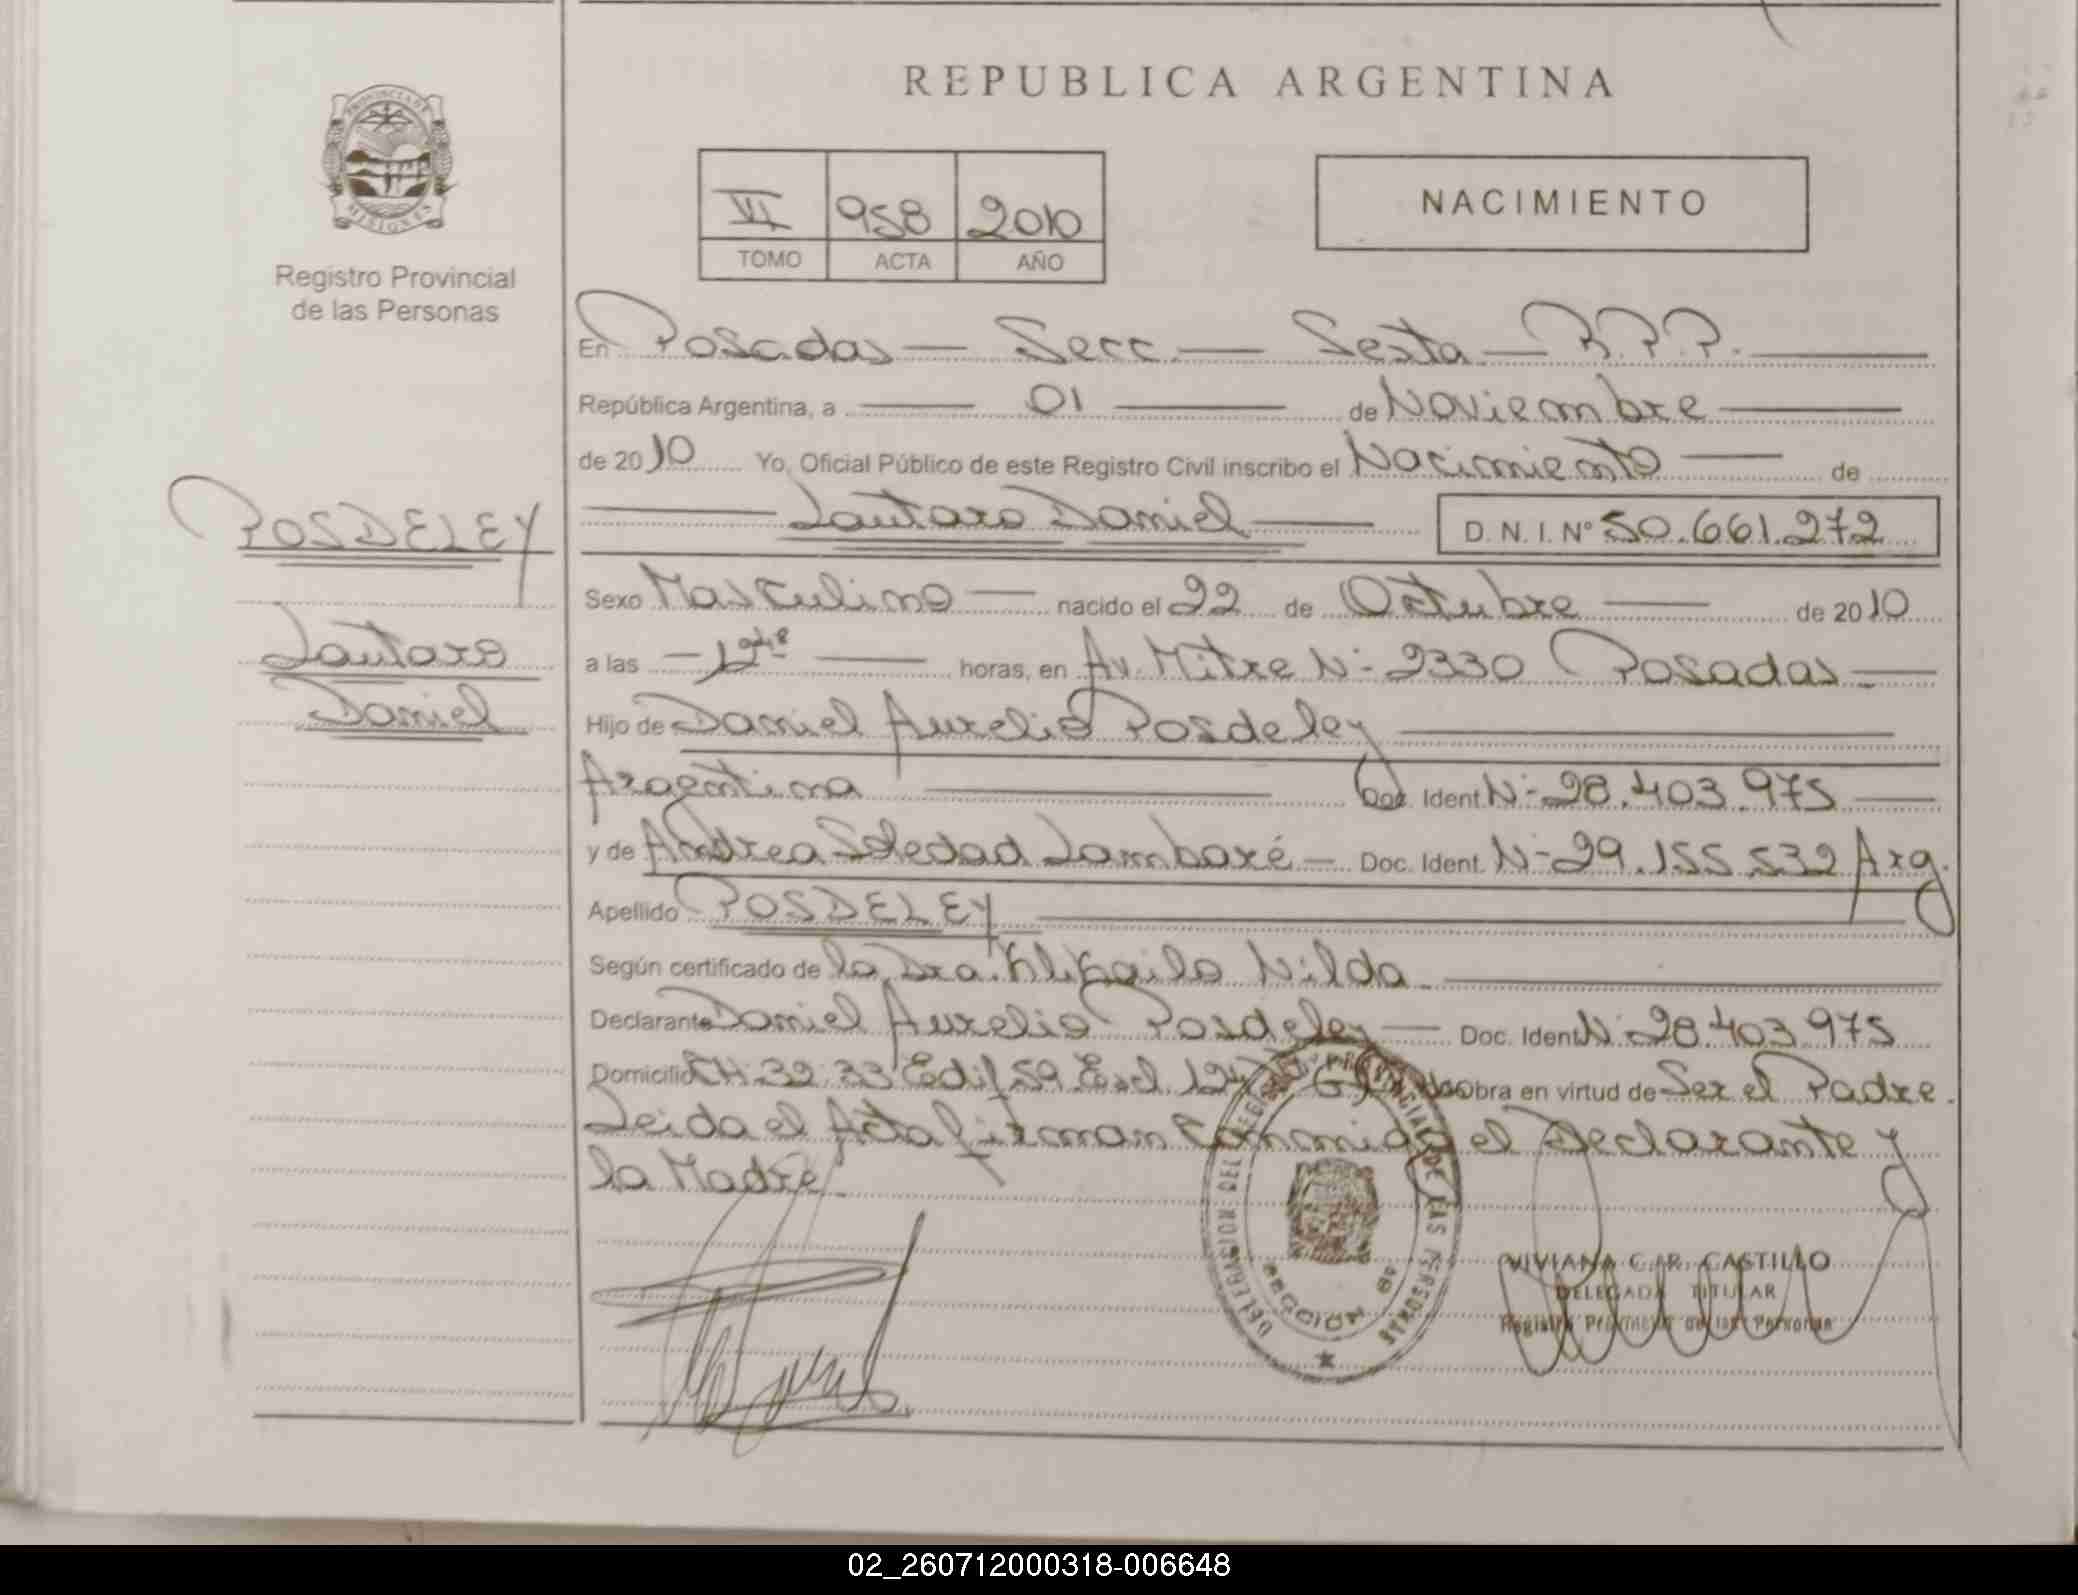 REPUBLICA ARGENTINA
PROVINCIA DE
MISIONES
Registro Provincial
de las Personas
VI 958 2010
TOMO ACTA AÑO
NACIMIENTO
En Posadas — Secc. — Sexta — R.P.P. —
República Argentina, a — 01 — de Noviembre —
de 2010 Yo, Oficial Público de este Registro Civil inscribo el Nacimiento — de
POSDELEY
— Lautaro Daniel — D. N. I. Nº 50.661.272
Sexo Masculino — nacido el 22 de Octubre — de 2010
Lautaro
a las — 12 — horas, en Av. Mitre Nº 2330 Posadas —
Daniel
Hijo de Daniel Aurelio Posdeley —
Argentina — Doc. Ident. Nº 28.403.975 —
y de Andrea Soledad Lambaré — Doc. Ident. Nº 29.155.532 Arg.
Apellido POSDELEY —
Según certificado de la Dra. Nilda —
Declarante Daniel Aurelio Posdeley — Doc. Ident Nº 28.403.975
Domicilio CH. 32 33 Edif 59 Esc. Obra en virtud de Ser el Padre.
Leida el Acta firman conmigo el Declarante y
la Madre.
DELEGACION DEL REGISTRO PROVINCIAL DE LAS PERSONAS
SECCION 6ª
VIVIANA C. R. CASTILLO
DELEGADA TITULAR
Registro Provincial de las Personas
02_260712000318-006648